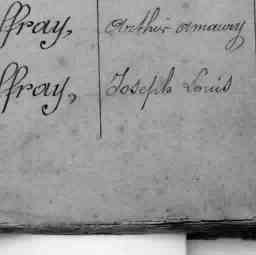 ffray, Arthur Amaury
ffray, Joseph Louis